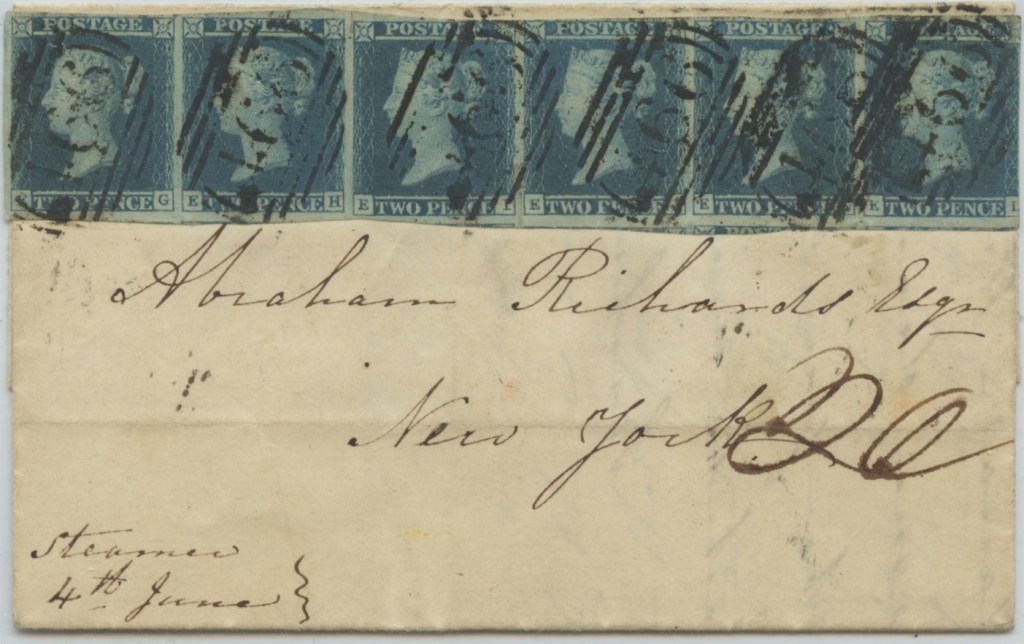 POSTAGE POSTAGE POSTAGE POSTAGE POSTAGE POSTAGE
TWO PENCE G E TWO PENCE H E TWO PENCE E TWO PENCE TWO PENCE K TWO PENCE L
Abraham Richards Esqr
New York 20
Steamer
4th June